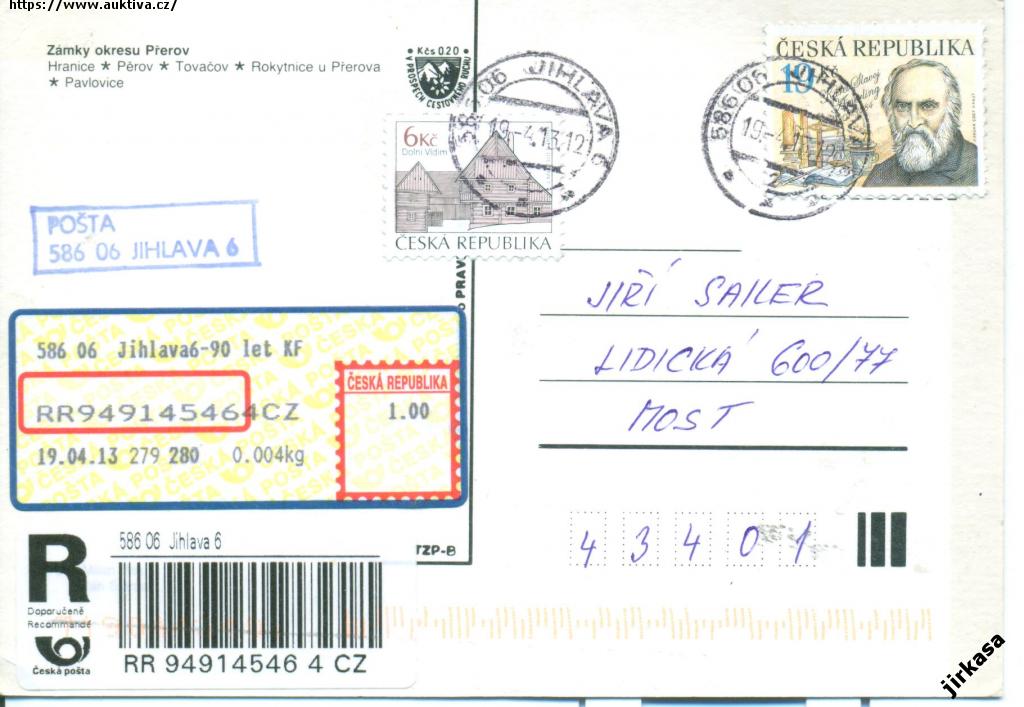 https://www.auktiva.cz/
Zámky okresu Přerov
Hranice ★ Pěrov ★ Tovačov ★ Rokytnice u Přerova
★ Pavlovice
Kčs 0.20
V PROSPĚCH CESTOVNÍHO RUCHU
586 06 JIHLAVA 6
19.-4.13.12
6 Kč
Dolní Vidim
ČESKÁ REPUBLIKA
ČESKÁ REPUBLIKA
19 Kč
586 06 JIHLAVA
19.-4.
POŠTA
586 06 JIHLAVA 6
PRAV
586 06 Jihlava6-90 let KF
RR949145464CZ
19.04.13 279 280 0.004kg
ČESKÁ REPUBLIKA
1.00
JIŘÍ SAILER
LIDICKÁ 600/77
MOST
43401
TZP-B
R
Doporučeně
Recommandé
Česká pošta
586 06 Jihlava 6
RR 94914546 4 CZ
jirkasa